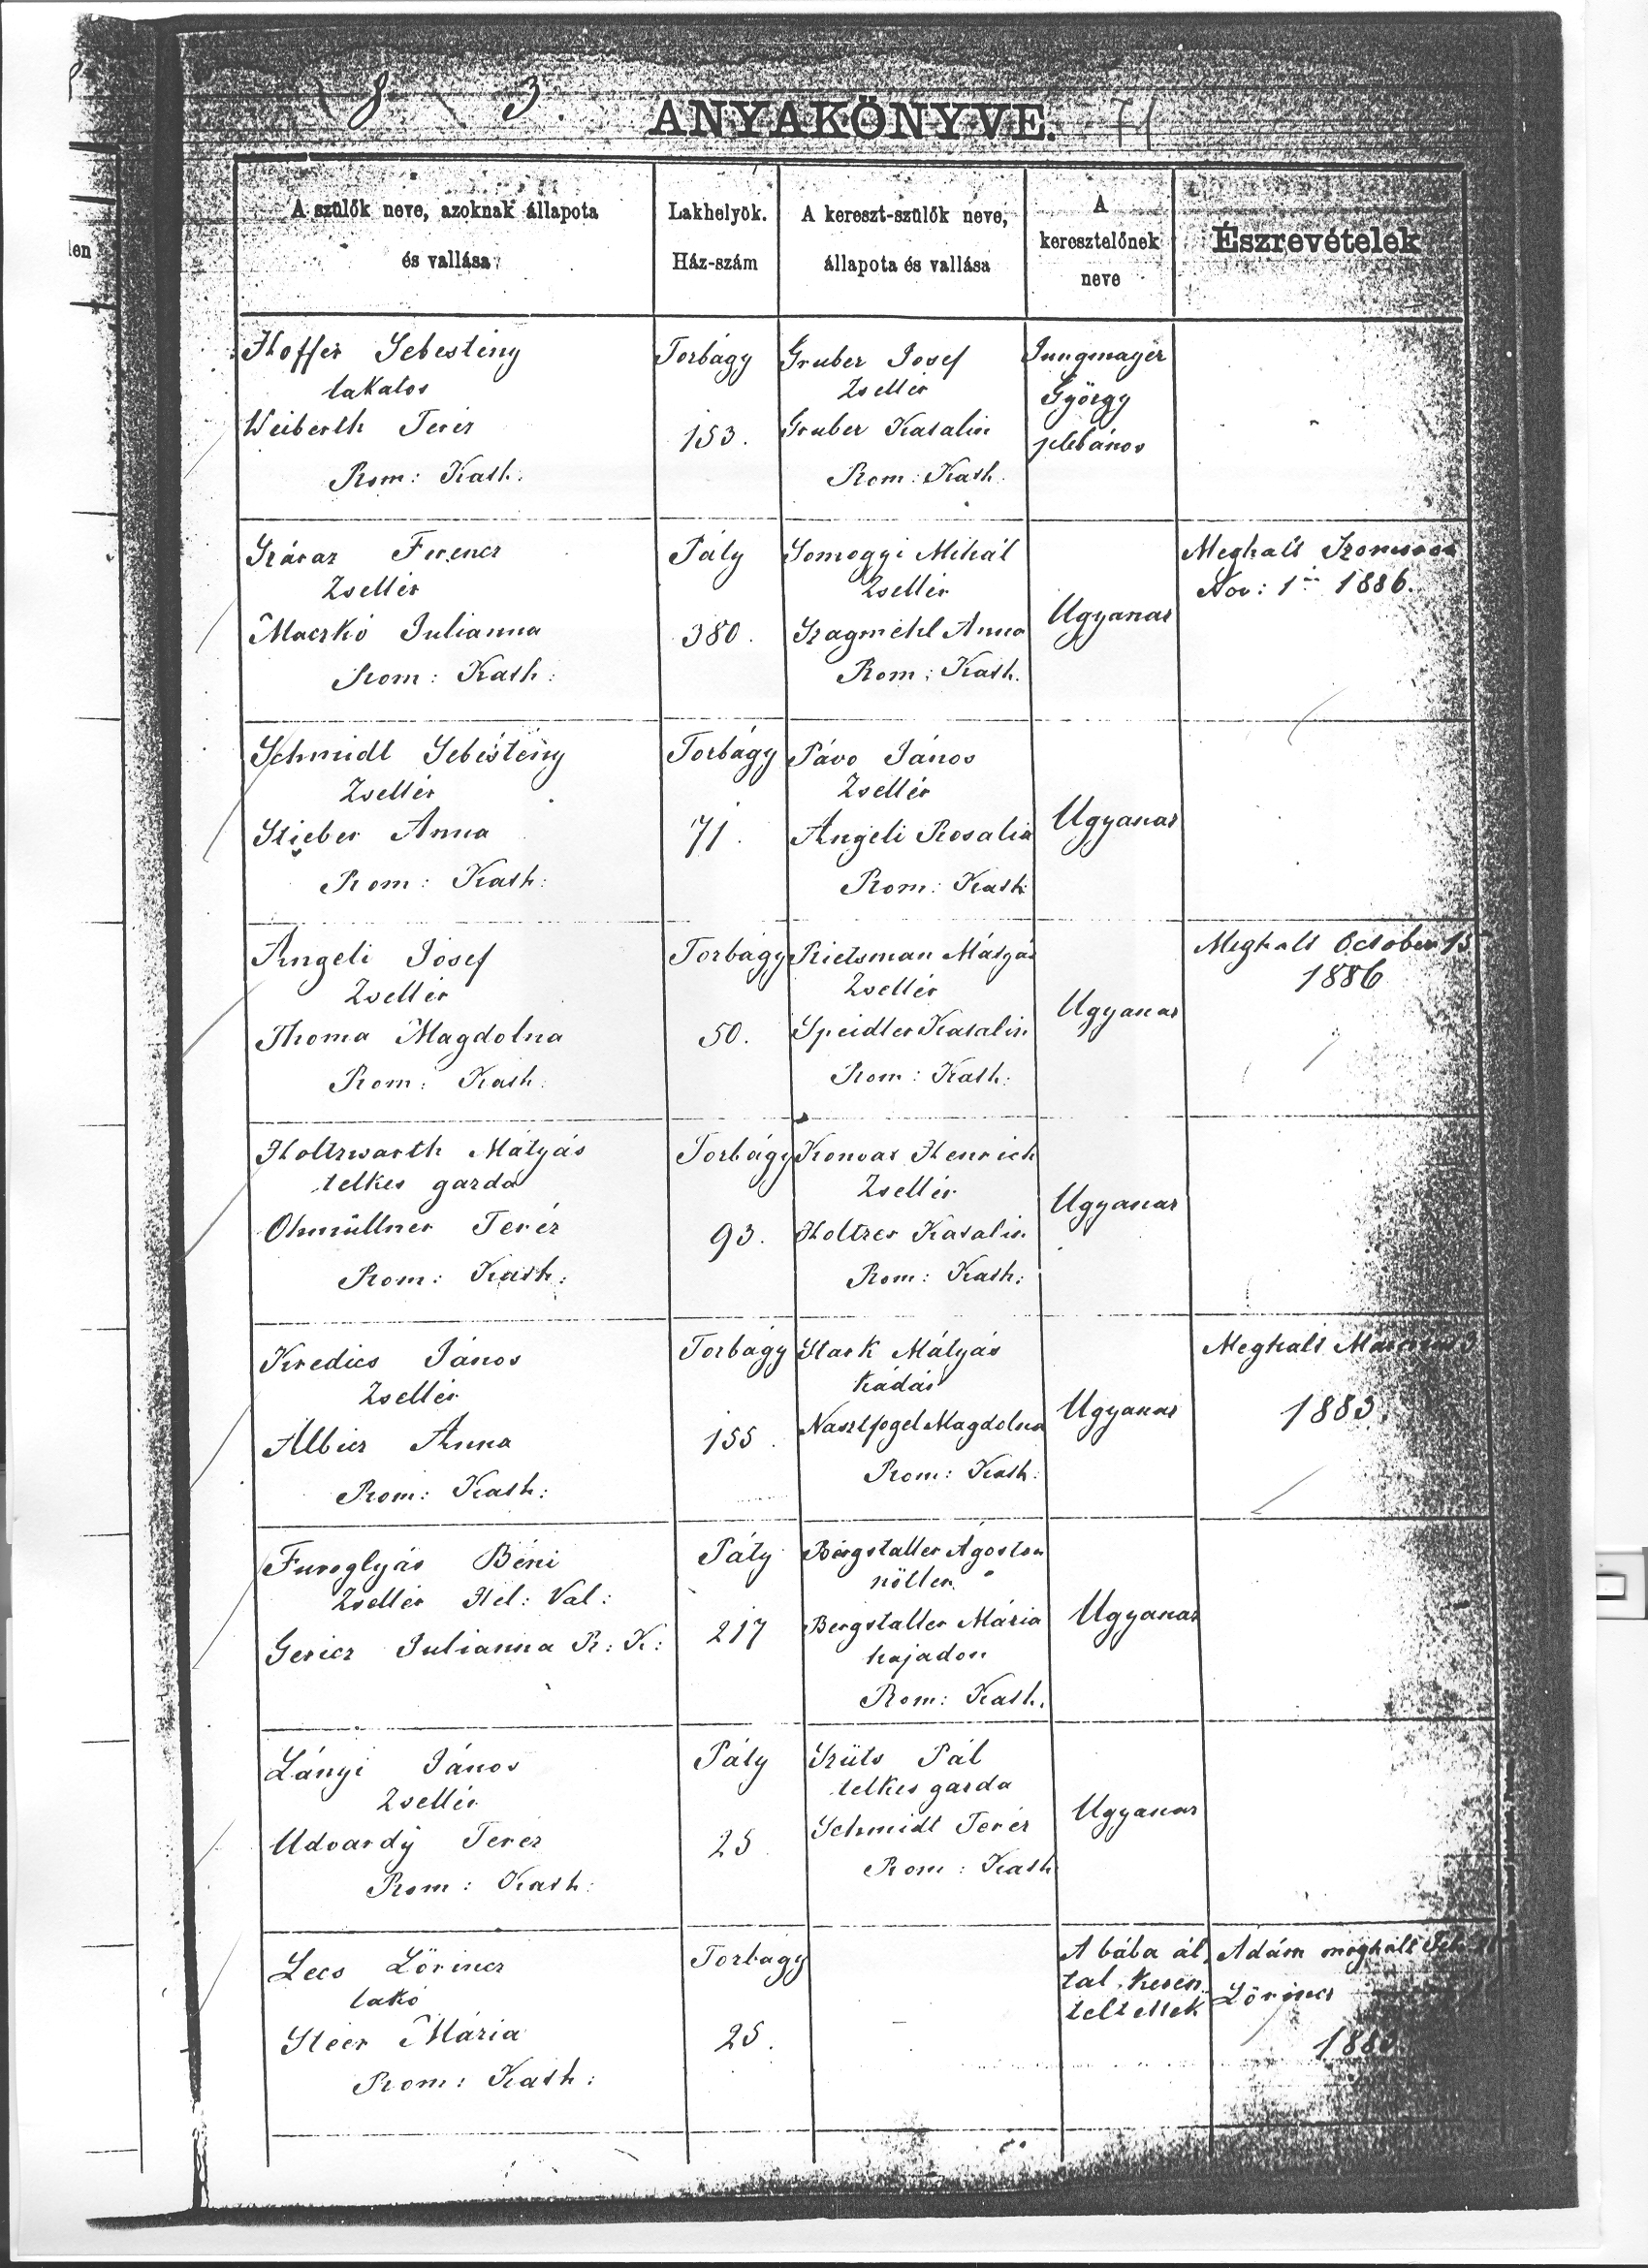 8 3.
ANYAKÖNYVE. 71
len
A szülők neve, azoknak állapota
és vallása
Lakhelyök.
Ház-szám
A kereszt-szülők neve,
állapota és vallása
A
keresztelőnek
neve
Észrevételek
Hoffer Sebestény
lakatos
Weiberth Teréz
Rom: Kath:
Torbágy
153.
Gruber Josef
Zsellér
Gruber Katalin
Rom: Kath.
Jungmayer
György
plébános
Ferencz
Zsellér
Maczkó Julianna
Rom: Kath:
Páty
380.
Somogyi Mihál
Zsellér
Anna
Rom: Kath.
Ugyanaz
Meghalt
Nov: 1én 1886.
Schmidt Sebestény
Zsellér
Stieber Anna
Rom: Kath:
Torbágy
71.
Pávo János
Zsellér
Angeli Rosalia
Rom: Kath:
Ugyanaz
Angeli Jósef
Zsellér
Thoma Magdolna
Rom: Kath:
Torbágy
50.
Rietsman Mátyás
Zsellér
Speidler Katalin
Rom: Kath:
Ugyanaz
Meghalt October 15
1886
Holtzwarth Mátyás
telkes gazda
Ohmüllner Teréz
Rom: Kath:
Torbágy
93.
Henrich
Zsellér
Holtzer Katalin
Rom: Kath:
Ugyanaz
Kredics János
Zsellér
Albicz Anna
Rom: Kath:
Torbágy
155.
Stark Mátyás
Kádár
Magdolna
Rom: Kath:
Ugyanaz
Meghalt
1883.
Furoglyás Béni
Zsellér Hel: Val:
Gericz Julianna R: K:
Páty
217
Bergstaller Ágoston
nőtlen
Bergstaller Mária
hajadon
Rom: Kath.
Ugyanaz
Lányi János
Zsellér
Udvardy Teréz
Rom: Kath:
Páty
25
Szüts Pál
telkes gazda
Schmidt Teréz
Rom: Kath
Ugyanaz
Lecs Lörincz
lakó
Steer Mária
Rom: Kath:
Torbágy
25.
A bába ál
tal keresz
teltettek
Adám meghalt
Lörincz